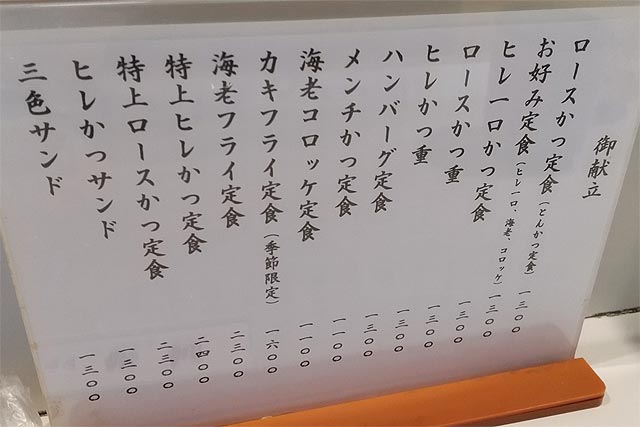 御献立
ロースかつ定食(とんかつ定食) 一三〇〇
お好み定食(ヒレ一口、海老、コロッケ) 一三〇〇
ヒレ一口かつ定食 一三〇〇
ロースかつ重 一三〇〇
ヒレかつ重 一三〇〇
ハンバーグ定食 一三〇〇
メンチかつ定食 一一〇〇
海老コロッケ定食 一一〇〇
カキフライ定食(季節限定) 一六〇〇
海老フライ定食 二三〇〇
特上ヒレかつ定食 二四〇〇
特上ロースかつ定食 二三〇〇
ヒレかつサンド 一三〇〇
三色サンド 一三〇〇